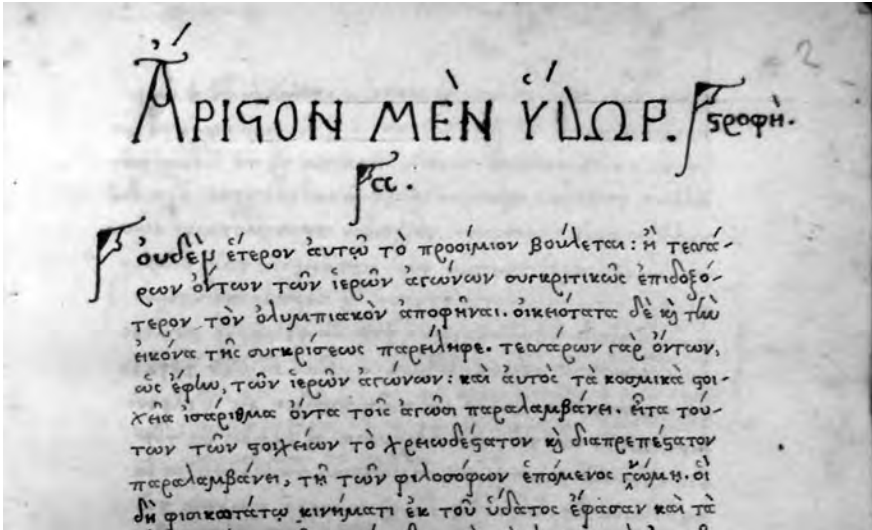 ἌΡΙϚΟΝ ΜῈΝ ὝΔΩΡ. ϛροφὴ.
αα.
ὀυδὲν ἕτερον ἀυτῷ τὸ προοίμιον βούλεται: ἢ τεσσά-
ρων ὄντων τῶν ἱερῶν ἀγώνων συγκριτικῶς ἐπιδοξό-
τερον τὸν ὀλυμπιακὸν ἀποφῆναι. οἰκειότατα δὲ κὴ τὴν
εἰκόνα τῆς συγκρίσεως παρείληφε. τεσσάρων γὰρ ὄντων,
ὡς ἔφην, τῶν ἱερῶν ἀγώνων: καὶ ἀυτὸς τὰ κοσμικὰ ϛοι-
χεῖα ἰσάριθμα ὄντα τοῖς ἀγῶσι παραλαμβάνει. εἶτα τού-
των τῶν ϛοιχείων τὸ χρειωδέϛατον κὴ διαπρεπέϛατον
παραλαμβάνει, τῇ τῶν φιλοσόφων ἑπόμενος γνώμη. οἱ
δὴ φισικωτάτῳ κινήματι ἐκ τοῦ ὕδατος ἔφασαν καὶ τὰ